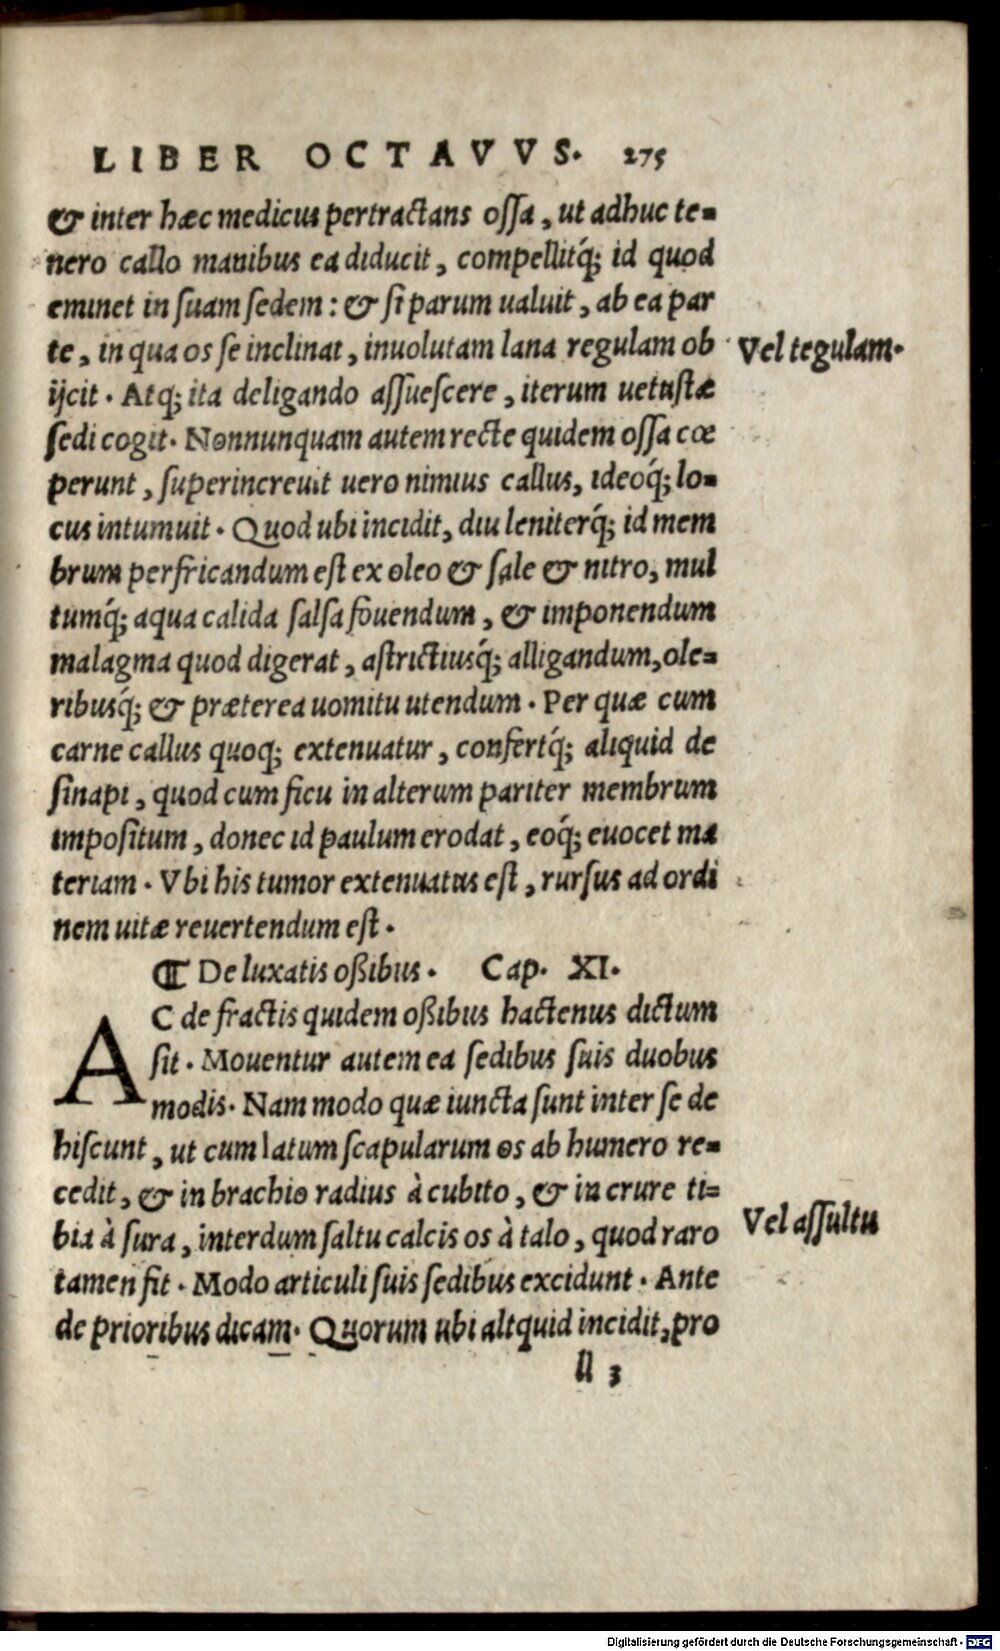 LIBER OCTAVVS. 275
& inter hæc medicus pertractans oſſa, ut adhuc te=
nero callo manibus ea diducit, compellitq́; id quod
eminet in ſuam ſedem: & ſi parum ualuit, ab ea par
te, in qua os ſe inclinat, inuolutam lana regulam ob
Vel tegulam.
ijcit. Atq; ita deligando aſſueſcere, iterum uetuſtæ
ſedi cogit. Nonnunquam autem recte quidem oſſa cœ
perunt, ſuperincreuit uero nimius callus, ideoq́; lo=
cus intumuit. Quod ubi incidit, diu leniterq́; id mem
brum perfricandum eſt ex oleo & ſale & nitro, mul
tumq́; aqua calida ſalſa fouendum, & imponendum
malagma quod digerat, aſtrictiusq́; alligandum, ole=
ribusq́; & præterea uomitu utendum. Per quæ cum
carne callus quoq; extenuatur, confertq́; aliquid de
ſinapi, quod cum ficu in alterum pariter membrum
impoſitum, donec id paulum erodat, eoq́; euocet ma
teriam. Vbi his tumor extenuatus eſt, rurſus ad ordi
nem uitæ reuertendum eſt.
¶ De luxatis oßibus. Cap. XI.
AC de fractis quidem oßibus hactenus dictum
ſit. Mouentur autem ea ſedibus ſuis duobus
modis. Nam modo quæ iuncta ſunt inter ſe de
hiſcunt, ut cum latum ſcapularum os ab humero re=
cedit, & in brachio radius à cubito, & in crure ti=
bia à ſura, interdum ſaltu calcis os à talo, quod raro
Vel aſſultu
tamen fit. Modo articuli ſuis ſedibus excidunt. Ante
de prioribus dicam. Quorum ubi altquid incidit, pro
ll 3
Digitalisierung gefördert durch die Deutsche Forschungsgemeinschaft - DFG